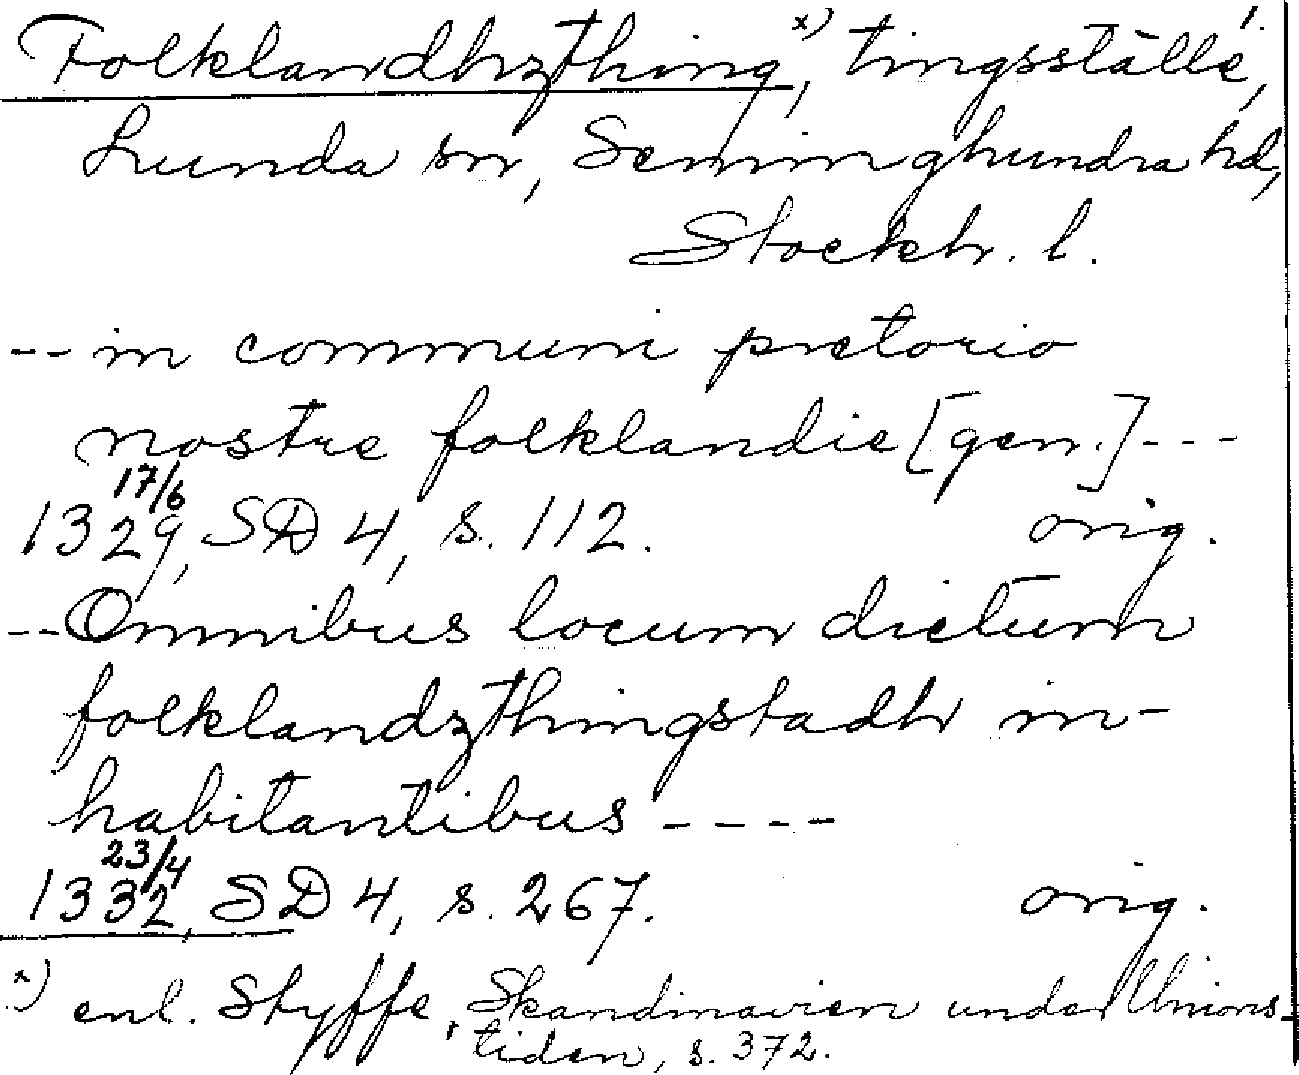 Folklandhzthing, x) tingsställe, 1.
Lunda sn, Seminghundra hd,
Stockh. l.
-- in communi pretorio
nostre folklandie [gen.] ---
17/6
1329, SD 4, s. 112. orig.
-- Omnibus locum dictum
folklandzthingstadh in-
habitantibus ----
23/4
1332, SD 4, s. 267. orig.
x) enl. Styffe, Skandinavien under Unions-
tiden, s. 372.